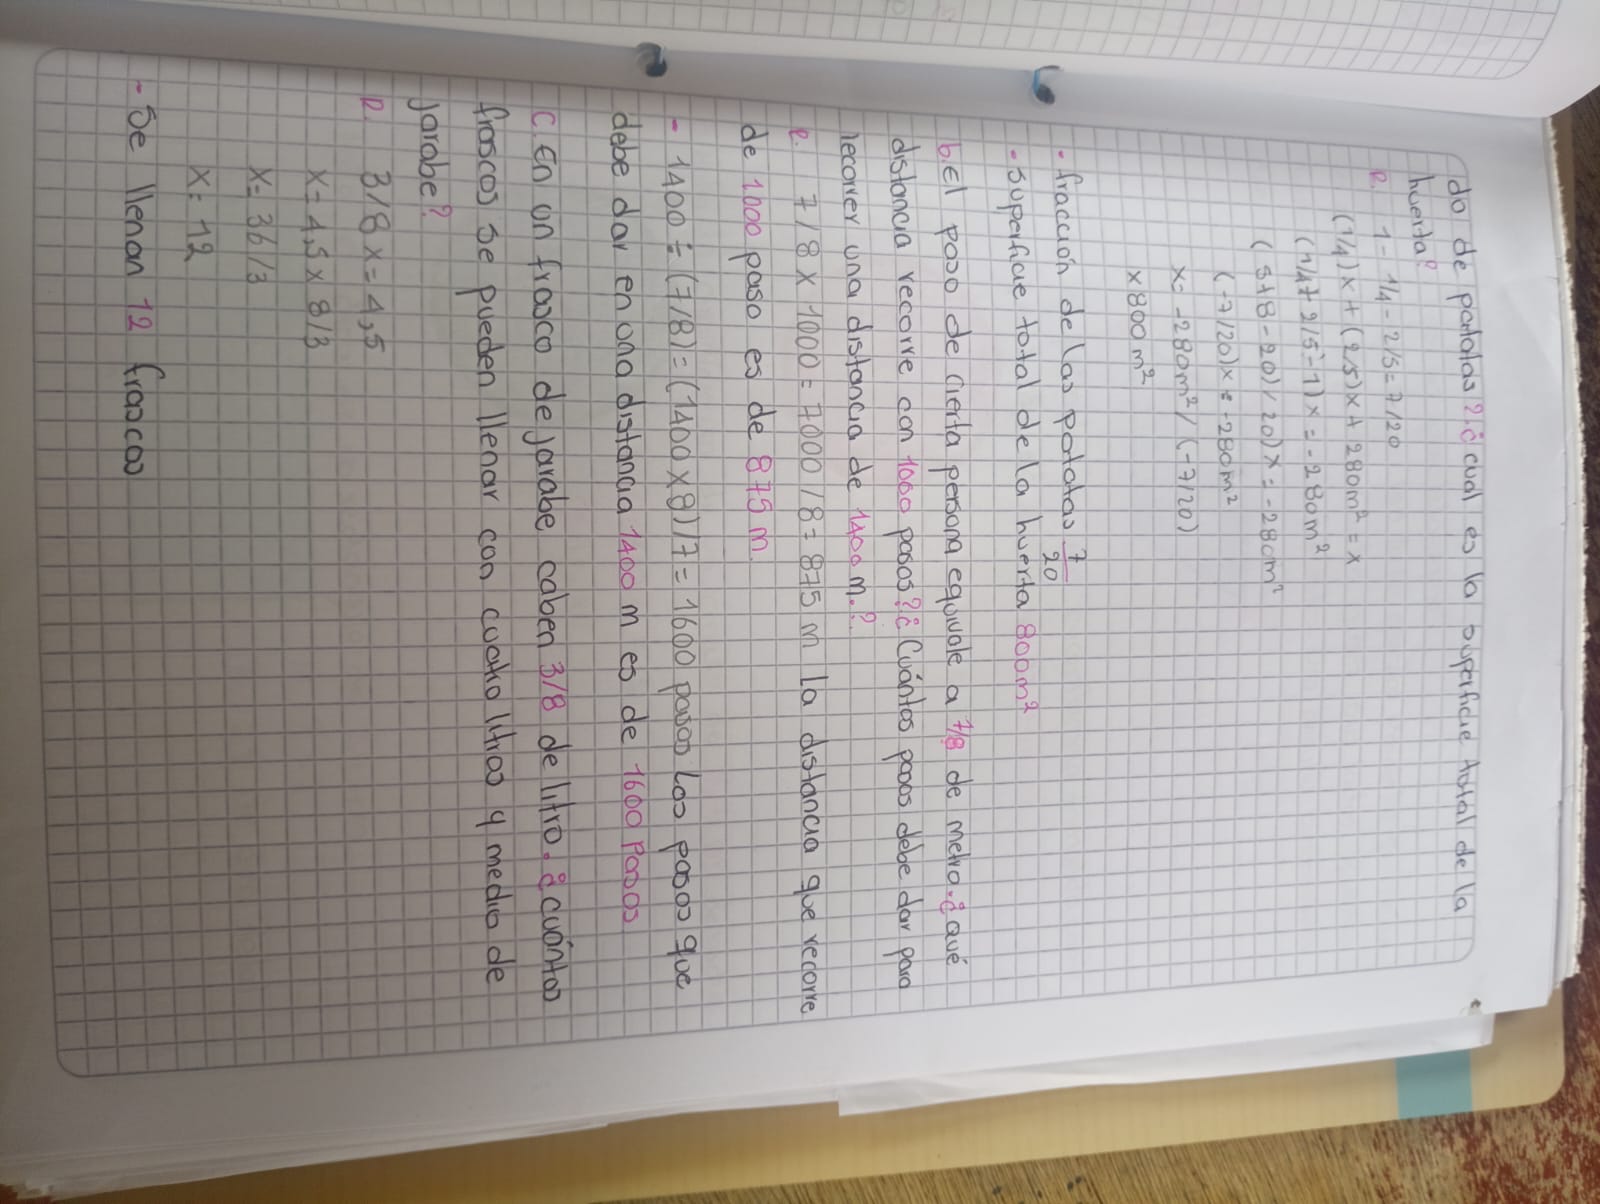 do de patatas?¿cual es la superficie total de la
huerta?
R. 1 - 1/4 - 2/5 = 7/20
(1/4)x + (2/5)x + 280m² = x
(1/4 + 2/5 - 1)x = -280m²
(5+8-20)/20)x = -280m²
(-7/20)x = -280m²
x= -280m²/(-7/20)
x800m²
- fracción de las patatas 7/20
- superficie total de la huerta 800m²
b. El paso de cierta persona equivale a 7/8 de metro.¿qué
distancia recorre con 1000 pasos?¿Cuántos pasos debe dar para
recorrer una distancia de 1400 m.?
R. 7/8 x 1000 = 7000/8 = 875 m la distancia que recorre
de 1000 paso es de 875 m.
- 1400 ÷ (7/8) = (1400 x 8)/7 = 1600 pasos Los pasos que
debe dar en una distancia 1400 m es de 1600 Pasos
C. En un frasco de jarabe caben 3/8 de litro.¿cuántos
frascos se pueden llenar con cuatro litros y medio de
jarabe?
R. 3/8 x = 4,5
x = 4,5 x 8/3
x= 36/3
x= 12
- Se llenan 12 frascos